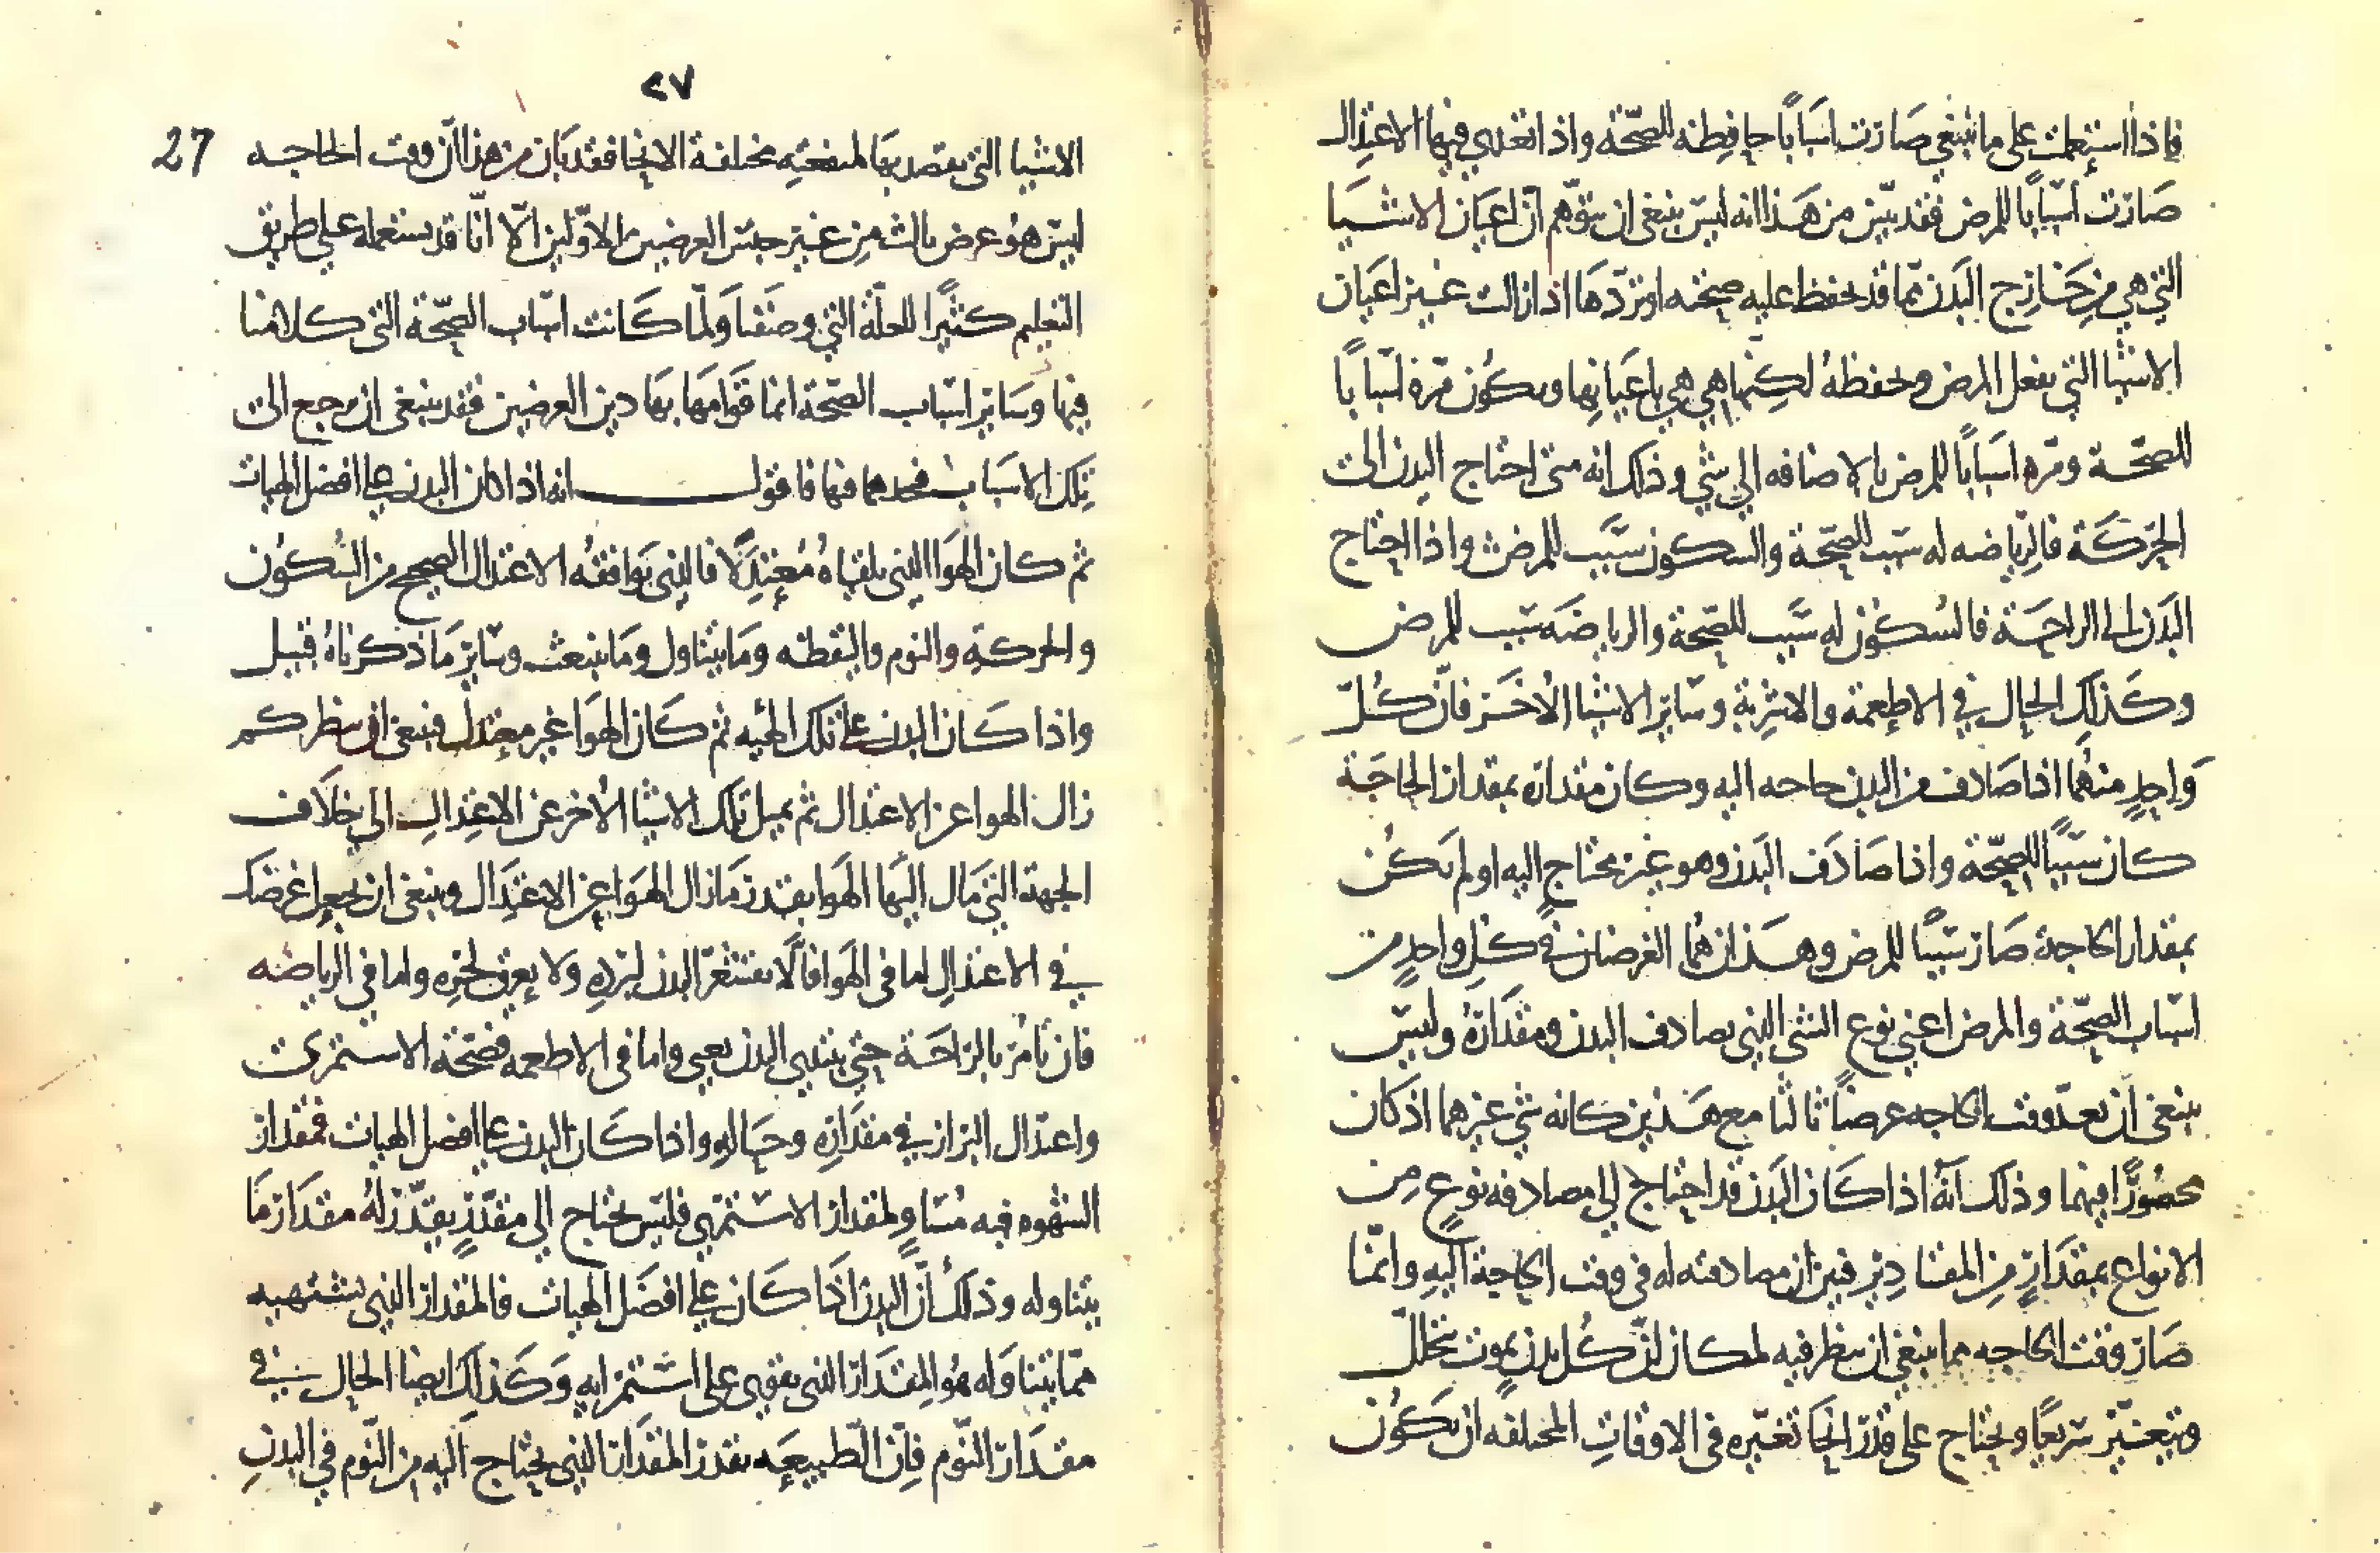 فاذا استعملت على ما ينبغي صارت اسبابًا حافظه للصحّة واذا تعدي فيها الاعتدال
صارت اسبابا للمرض فقد تبيّن من هذا انه ليس ينبغي ان يتوهم ان اعيان الاشيا
التي هي من خارج البدن مما قد يحفظ عليه صحته او يردّها اذا زالت غير اعيان
الاشيا التي تفعل المرض وتحفظهُ لكنها هي هي باعيانها وتكون مرّة اسبابًا
للصحّة ومرّه اسبابًا للمرض بالاضافه الي شي وذلك انه متي احتاج البدن الى
الحركة فالرياضه له سبب للصّحة والسكون سبب للمرض واذا احتاج
البدن الى الراحة فالسُكون له سبب للصّحة والرياضة سبب للمرض
وكذلك الحال في الاطعمة والاشربة وسائر الاشيا الاُخر فانّ كُلّ
واحدٍ منهما اذا صادف من البدن حاجه اليه وكان مقداره بمقدار الحاجة
كان سببًا للصحّة واذا صادف البدن وهو غير محتاج اليه او لم يكُن
بمقدار الحاجة صار سببًا للمرض وهذان هُما الغرضان في كلّ واحدٍ من
اسباب الصّحة والمرض اعني نوع الشي الذي يصادف البدن ومقدارهُ وليس
ينبغي ان نعدّ وقت الحاجه غرضًا ثالثا مع هذين كانه شي غيرهما اذ كان
محصُورًا فيهما وذلك انّه اذا كان البدن قد احتاج الي مصادفه نوعٍ من
الانواع بمقدارٍ من المقادير فبيّن ان مصادفته له في وقت الحاجة اليهِ وانّما
صار وقت الحاجه مما ينبغي ان ينظر فيه لمكان انّ كُل بدن يموت يتحلّل
ويتغيّر سريعًا ويحتاج على قدر انحا تغيّره في الاوقاتِ المختلفه ان تكُون
٢٧
27
الاشيا التي يقصد بها لمنفعتهِ مختلفة الانحا فقد بان من هذا ان وقت الحاجه
ليس هُو غرض ثالث من غير جنس الغرضين الاوّلين الّا انّا قد نستعمله على طريق
التعليم كثيرًا للعلّة التي وصفنا ولمّا كانت اسباب الصحّة التي كلامنا
فيها وسائر اسباب الصّحة انما قوامها بهاذين الغرضين فقد ينبغي ان نرجع الى
تلك الاسباب فنحدهما فيها فاقول انه اذا كان البدن على افضل الهيات
ثم كان الهوا الذي يلقاهُ مُعتدلًا فالذي يوافقُه الاعتدال الصحيح من السُكُون
والحركةِ والنوم واليقظه وما يتناول وما ينبعث وسائر ما ذكرناهُ قبيل
واذا كان البدن على تلك الهئيه ثم كان الهوا غير معتدل فينبغي ان ينظر كم
زال الهوا عن الاعتدال ثم يميل تلك الاشيا الاُخر عن الاعتدالِ الي خلاف
الجهة التي مال اليها الهوا بقدر ما زال الهوا عن الاعتدال وينبغي ان تجعل غرضك
في الاعتدالِ اما في الهوا فالّا يقشعرّ البدن لبردِه ولا يعرق لحرّه واما في الرياضه
فان تامُر بالراحة حتي يبتدي البدن يعيي واما في الاطعمه فصحّة الاستمرى
واعتدال البراز في مقدارِه وحالهِ واذا كان البدن على افضل الهيات فمقدار
الشهوه فيه مُساوٍ لمقدار الاستمري فليس يحتاج الي مقدّرٍ يقدّر لهُ مقدار ما
يتناوله وذلك انّ البدن اذا كان علي افضل الهيات فالمقدار الذي يشتهيه
ممّا يتناوله هُو المقدار الذي يقوي على استمرايه وكذلك ايضا الحال في
مقدار النّوم فانّ الطّبيعه تقدر المقدار الذي يحتاج اليه من النّوم في البدنِ